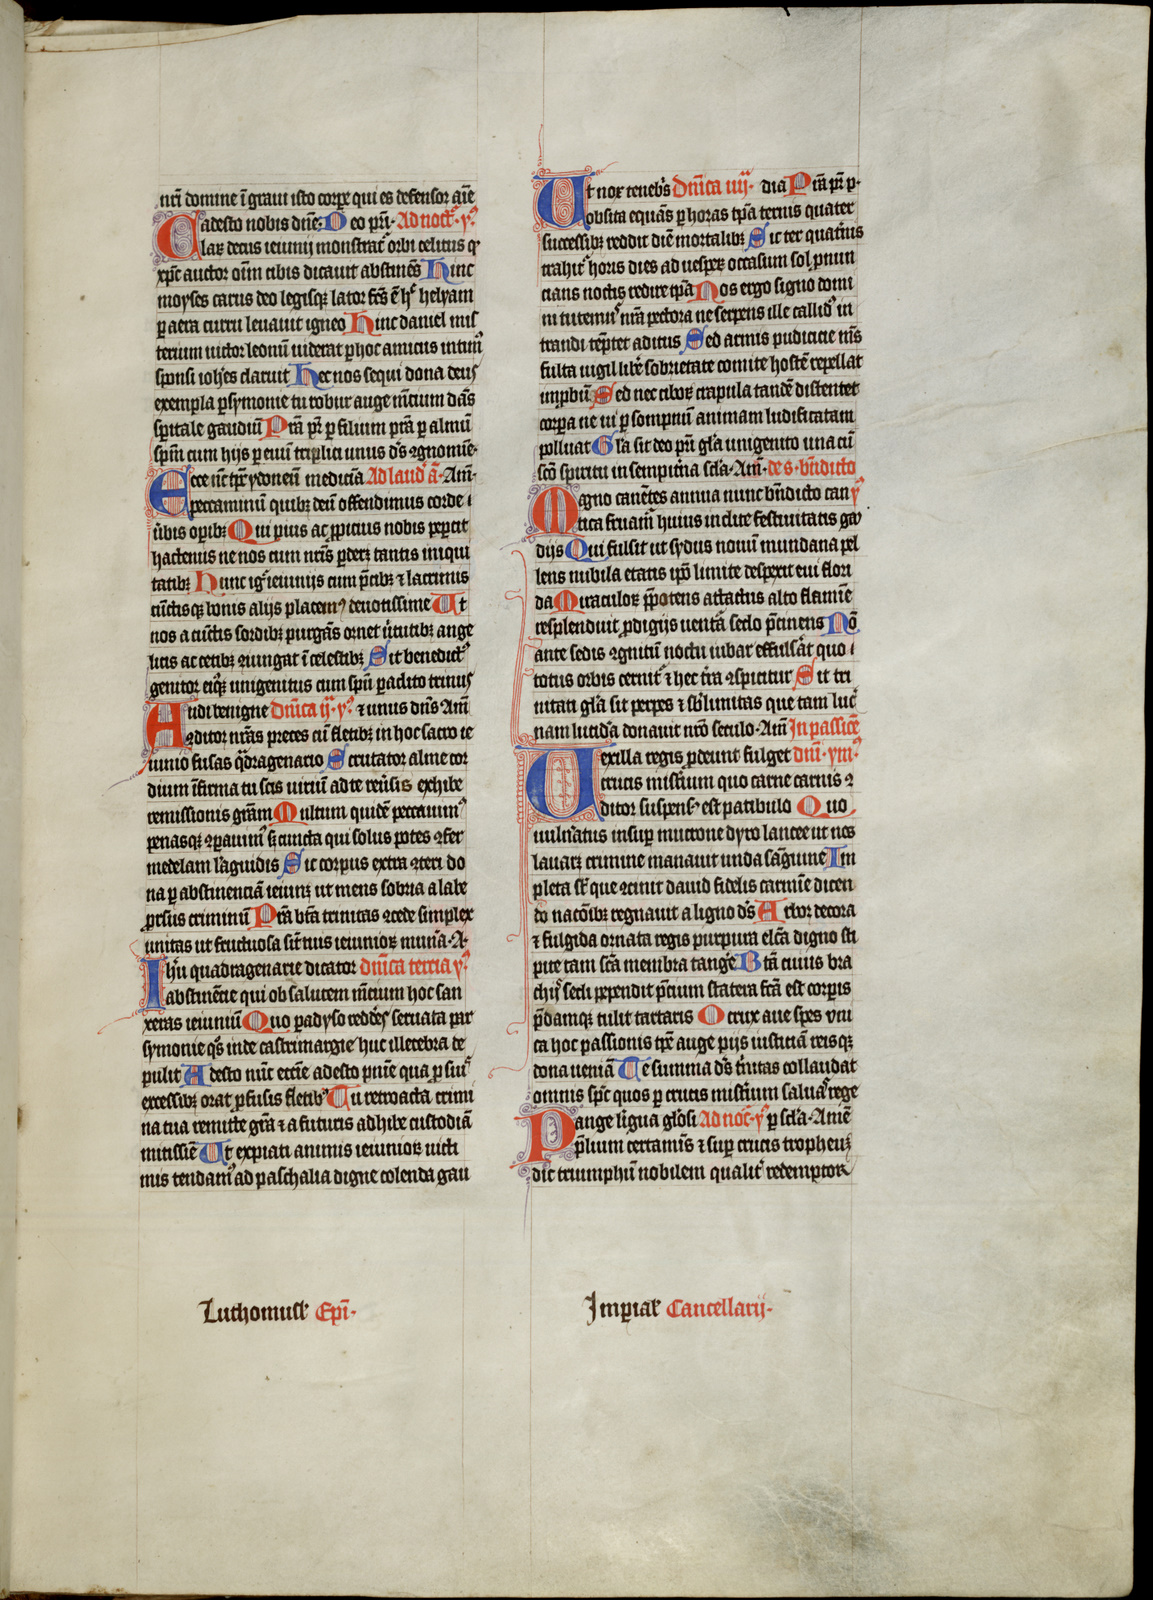 nr̄i domine ī graui isto corpe qui es defensor aīe
adesto nobis dn̄e· Deo pr̄i· Ad noct᷎· yꝰ
Clar̄ decus ieiunij monstrat᷎ orbi celitus qͥ
xp̄c auctor oīm cibis dicauit abstinēs Hinc
moyses carus deo legisqꝫ lator fc̄s ē h᷎ helyam
ꝑ aera curru leuauit igneo Hinc daniel mis
terium uictor leonū uiderat ꝑ hoc amicus intim᷎
sponsi ioh̄es claruit Hec nos sequi dona deꝰ
exempla ꝑsymonie tu robur auge mc̄ium dās
sp̄itale gaudiū Pr̄a pr̄ ꝑ filium pr̄a ꝑ almū
sp̄m cum hijs ꝑ euū triplici unus ds̄ ꝯgnomīe·
Ecce nc̄ tp̄r ydoneū medicīa Ad laud᷎ ā· Am̄·
peccaminū quibꝫ deū offendimus corde i
ūbis opībꝫ Qui pius ac ꝓpicius nobis peꝑcit
hactenus ne nos cum nr̄is ꝑderꝫ tantis iniqui
tatibꝫ Hunc ig᷎ ieiunijs cum pc̄ibꝫ ⁊ lacrimis
cūctisqꝫ bonis alijs placemꝰ deuotissime Ut
nos a cūctis sordibꝫ purgās ornet ūtutibꝫ ange
licis ac cetibꝫ ꝯiungat ī celestibꝫ Sit benedict᷎
genitor eiꝰqꝫ unigenitus cum spū ꝑadito trinus
Audi benigne Dn̄ica ij· yꝰ ⁊ unus dn̄s Am̄
ꝯditor nr̄as preces cū fletibꝫ in hoc sacro ie
iunio fusas qͣdragenario Scrutator alme cor
dium īfirma tu scis uiriū ad te reūsis exhibe
remissionis grām Multum quidē peccauimꝰ
penasqꝫ ꝯparauimꝰ sꝫ cuncta qui solus potes ꝯfer
medelam lāguidis Sic corpus extra ꝯteri do
na ꝑ abstinenciā ieiunꝫ ut mens sobria a labe
ꝓrsus criminū Pr̄a bt̄a trinitas ꝯcede simplex
unitas ut fructuosa sīt tuis ieiuniorꝫ mun̄a· A·
Ihū quadragenarie dicator Dn̄ica tercia yꝰ
abstinēcie qui ob salutem mēcium hoc san
xeras ieiuniū Quo ꝑadyso redde᷎s seruata par
symonie qͦs inde castrimargie huc illecebra de
pulit Adesto nūc ecc̄ie adesto pnīe qua ꝓ suis
excessibꝫ orat ꝓfusis fletibꝫ Tu retroacta crimi
na tua remitte grā ⁊ a futuris adhibe custodiā
mitissīe Ut expiati annuis ieiuniorꝫ uicti
mis tendamꝰ ad paschalia digne colenda gau
Luthomusł Ep̄i·
Ut nox tenebꝰs Dn̄ica iiij· dia Pr̄a pr̄ p·
obsita equās ꝑ horas tp̄a ternis quater
successibꝫ reddit diē mortalibꝫ Sic ter quat̄nis
trahit᷎ horis dies ad uesperꝫ occasum sol ꝓnun
cians noctis redire tp̄a Nos ergo signo domi
ni tutemꝰ nr̄a pectora ne serpens ille callidꝰ in
trandi tēptet aditus Sed armis pudicicie mēs
fulta uigil libe᷎ sobrietate comite hostē repellat
improbū Sed nec ciborꝫ crapula tandē distentet
corpa ne ui ꝑ sompnū animam ludificatam
polluat Gl̄a sit deo pr̄i gl̄a unigenito una cū
scō spiritu in sempit̄na sc̄la· Am̄· de s· bn̄dicto
Magno canētes annua nunc bn̄dicto can yꝰ
tica fruam᷎ huius inclite festiuitatis gau
dijs Qui fulsit ut sydus nouū mundana pel
lens nubila etatis ip̄o limite despexit eui flori
da Miraculorꝫ pp̄otens afflactus alto flamīe
resplenduit ꝓdigijs uentā sc̄lo pc̄inens Nō
ante sedis ꝯgnitū noctu iubar effulsāt quo i
totus orbis cernit᷎ ⁊ hec t̄ra ꝯspicitur Sit tri
nitati gl̄a sit perpes ⁊ sb̄limitas que tam luc᷎
nam lucidā donauit nr̄o seculo· Am̄ In passiōe
Uexilla regis ꝓdeunt fulget dn̄i· ymꝰ
crucis mist̄ium quo carne carnis ꝯ
ditor suspensꝰ est patibulo Quo
uuln̄atus insup mucrone dyro lancee ut nos
lauarꝫ crimine manauit unda sāguine Im
pleta st᷎ que ꝯcinit dauid fidelis carmīe dicen
do nac̄oībꝫ regnauit a ligno ds̄ Arbor decora
⁊ fulgida ornata regis purpura elc̄a digno sti
pite tam sc̄a membra tangēe Btā cuius bra
chijs secli pependit pc̄ium statera fc̄a est corpis
p̄damqꝫ tulit tartaris O crux aue spes vni
ca hoc passionis tp̄e auge pijs iusticiā reisqꝫ
dona ueniā Te summa ds̄ t̄nitas collaudat
omnis sp̄c quos ꝑ crucis mist̄ium saluas rege
Pange līgua gl̄osi Ad noc᷎· yꝰ ꝑ sc̄la· Amē
ꝓlium certamīs ⁊ sup crucis tropheuꝫ
dic triumphū nobilem qualit᷎ redemptor
Imꝑiał Cancellarij·